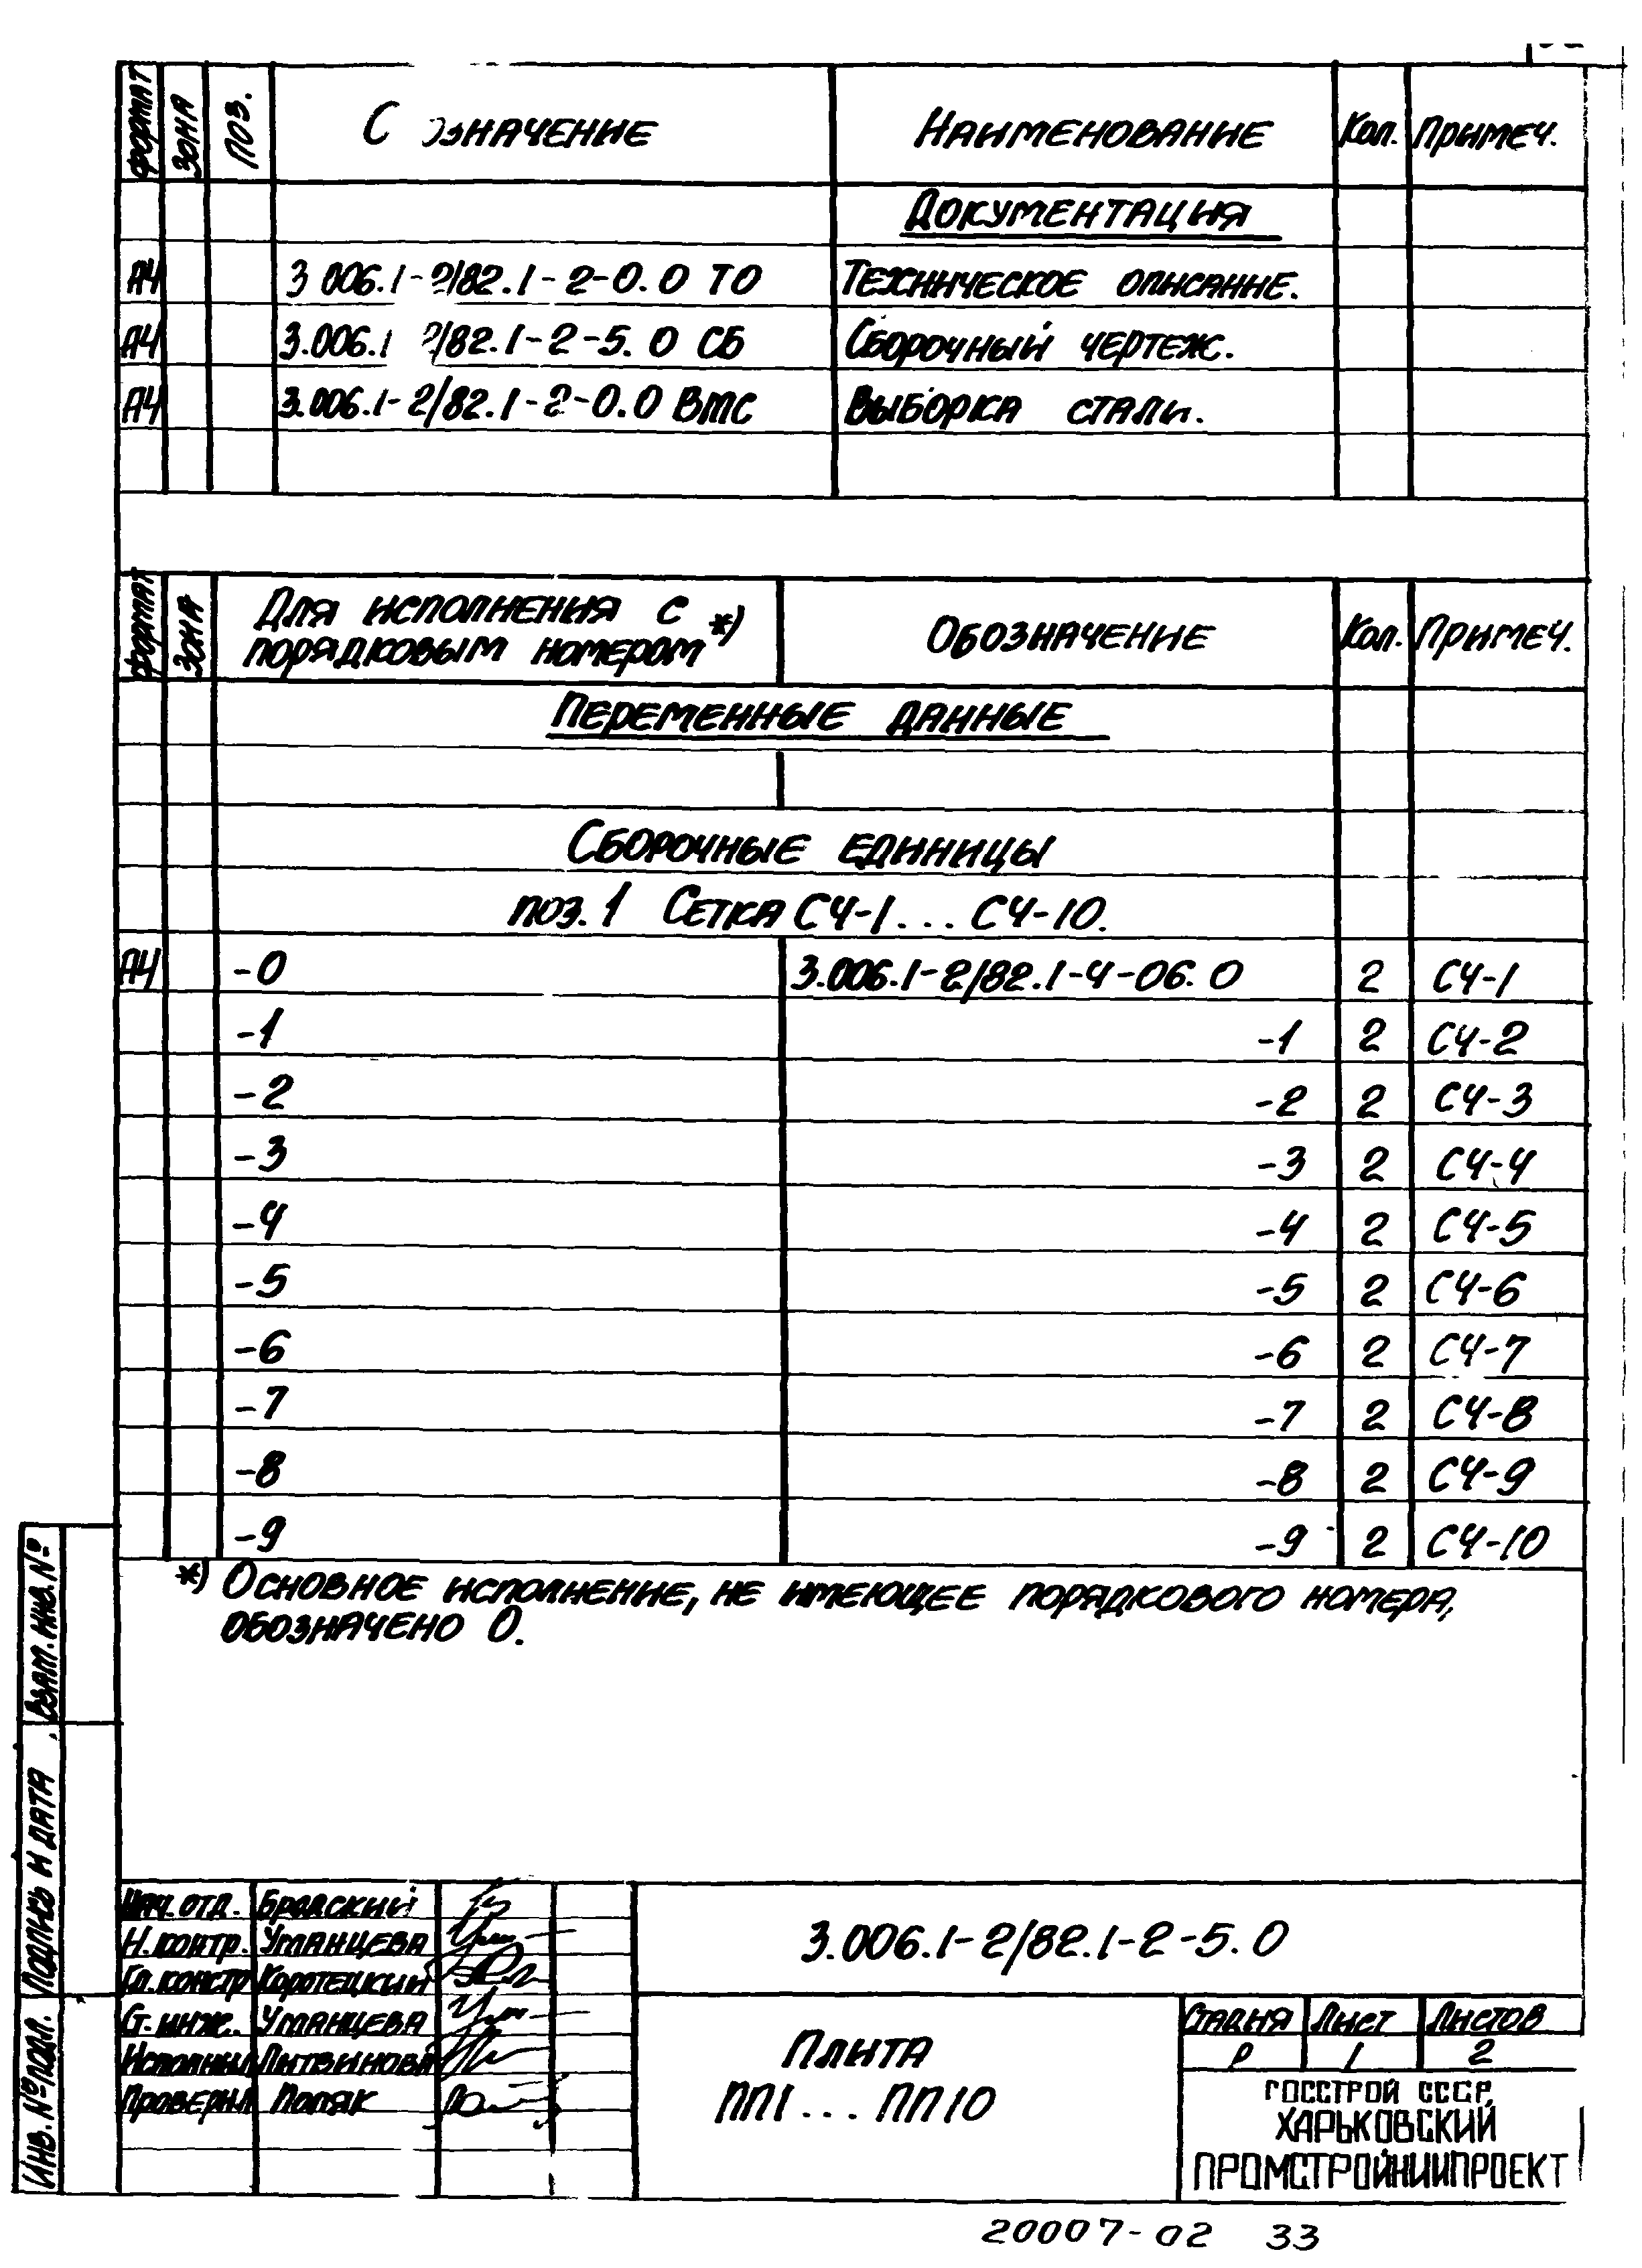 Формат Зона Поз. Обозначение Наименование Кол. Примеч.
Документация
А4 3.006.1-2/82.1-2-0.0 ТО Техническое описание.
А4 3.006.1-2/82.1-2-5.0 СБ Сборочный чертеж.
А4 3.006.1-2/82.1-2-0.0 ВМС Выборка стали.
Формат Зона Для исполнения с порядковым номером *) Обозначение Кол. Примеч.
Переменные данные
Сборочные единицы
поз. 1 Сетка С4-1... С4-10.
А4 -0 3.006.1-2/82.1-4-06.0 2 С4-1
-1 -1 2 С4-2
-2 -2 2 С4-3
-3 -3 2 С4-4
-4 -4 2 С4-5
-5 -5 2 С4-6
-6 -6 2 С4-7
-7 -7 2 С4-8
-8 -8 2 С4-9
-9 -9 2 С4-10
*) Основное исполнение, не имеющее порядкового номера,
обозначено 0.
Взам. инв. №
Подпись и дата
Инв. № подл.
Нач. отд. Бродский
Н. контр. Уманцева
Гл. констр Коротецкий
Ст. инж. Уманцева
Исполнил Литвинова
Проверил Поляк
3.006.1-2/82.1-2-5.0
Плита
ПП1... ПП10
Стадия Лист Листов
Р 1 2
ГОССТРОЙ СССР,
ХАРЬКОВСКИЙ
ПРОМСТРОЙНИИПРОЕКТ
20007-02 33